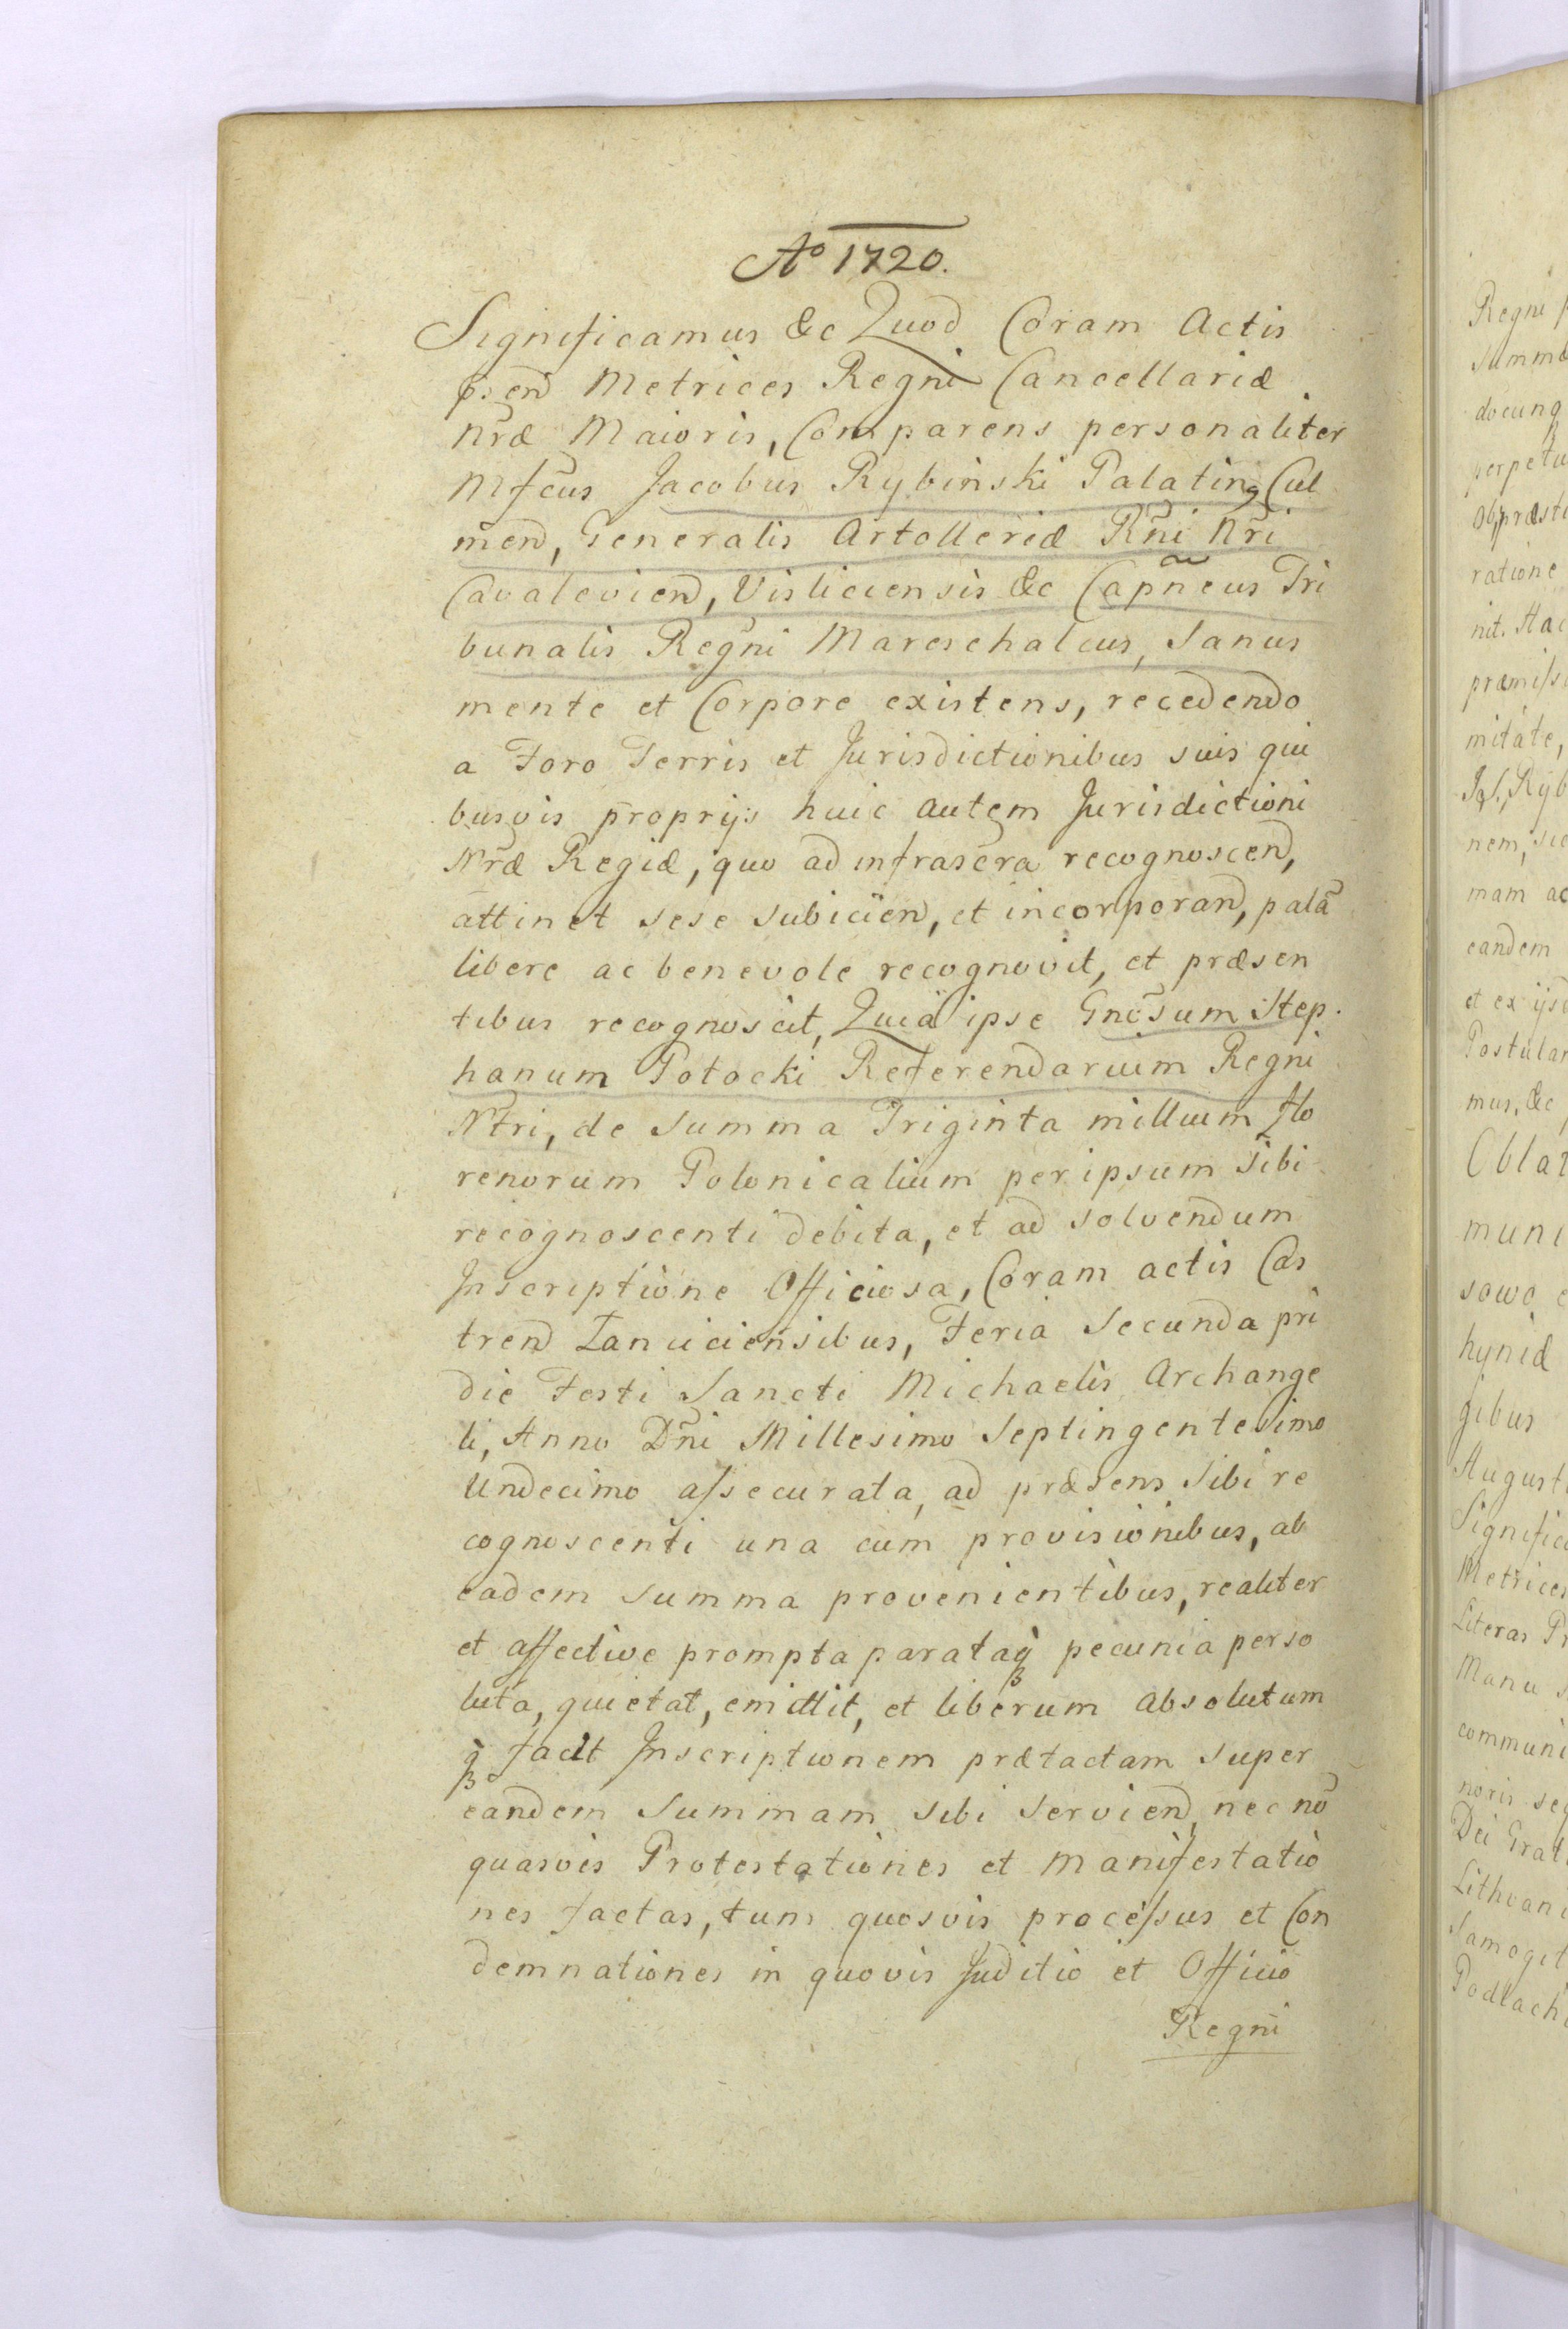 Aº 1720.
Significamus &c Quod Coram Actis
p̱:end Metrices Regni Cancellariæ
nr̃æ Maioris, Comparens personaliter
Mfcus Jacobus Rybinski Palatinꝯ Cul
mend, Generalis Artolleriæ Rñi Nr̃i
Cavaleviend, Visliciensis &c Capñeus Tri
bunalis Regñi Mareschalcus, Sanus
mente et Corpore existens, recedendo
a Foro Terris et Jurisdictionibus suis qui
busvis proprijs huic autem Jurisdictioni
Nr̃æ Regiæ, quo ad infrascr̃a recognoscend,
attinet sese subicien, et incorporand, palã
libere ac benevole recognovit, et præsen
tibus recognoscit, Quia ipse Gnõsum Step.
hanum Potocki Referendarium Regni
Ntri, de Summa Triginta millium flo
renorum Polonicalium per ipsum Sibi
recognoscenti debita, et ad solvendum
Inscriptione Officiosa, Coram actis Cas
trend Łanciciensibus, Feria Secunda pri
die Festi Sancti Michaelis Archange
li, Anno Dñi Millesimo Septingentesimo
Undecimo assecurata, ad præsens Sibi re
cognoscenti una cum provisionibus, ab
eadem Summa provenientibus, realiter
et affective prompta parataqꝫ pecunia perso
luta, quietat, emittit, et liberum absolutum
qꝫ facit Inscriptionem prætactam super
eandem Summam sibi serviend, nec nõ
quasvis Protestationes et manifestatio
nes factas, tum quosvis processus et Con
demnationes in quovis Juditio et Officio
Regni
Regni
Summa
docunqꝫ
perpetu
Obpræsti
ratione
nit. Hac
præmiss
mitate,
Ryb
nem, sic
mam ac
eandem
et ex ijsd
Postular
mus, &c
Oblat
muni
sowo
hyniæ
gibus
August
Signific
Metrices
Literas Pr
Manu s
communi
noris seq
Dei Grat
Lithvani
Samogit
Podlach